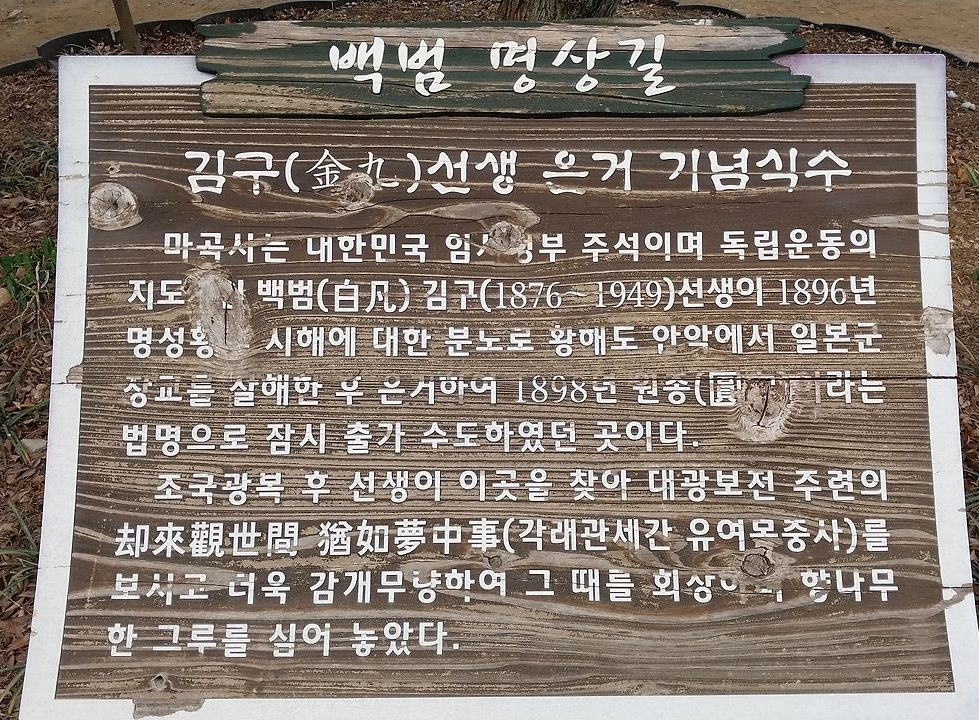 백범 명상길
김구(金九)선생 은거 기념식수
마곡사는 대한민국 주석이며 독립운동의
백범(白凡) 김구(1876~1949)선생이 1896년
시해에 대한 분노로 황해도 안악에서 일본군
장교를 살해한 후 은거하여 1898년
법명으로 잠시 출가 수도하였던 곳이다.
조국광복 후 선생이 이곳을 찾아 대광보전 주련의
却來觀世間 猶如夢中事(각래관세간 유여몽중사)를
보시고 더욱 감개무량하여 그 때를 향나무
한 그루를 심어 놓았다.